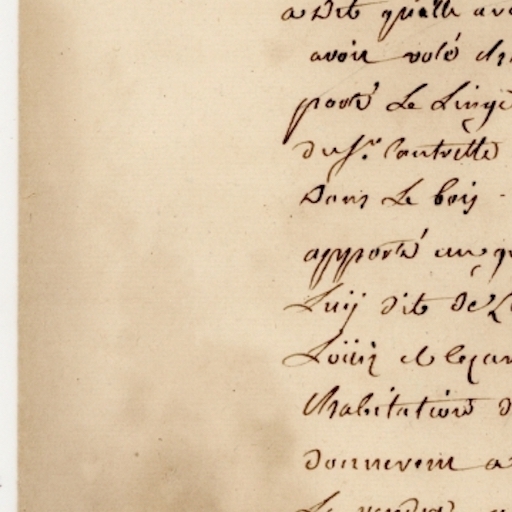 a Dit quelle av
avoir volé ch
porté Le Linge
du Sr. Coutrelle
Dans Le bois -
apporté au q
Luy dit de L
Loüis et les
lhabitation d
donnerent a
La vendre